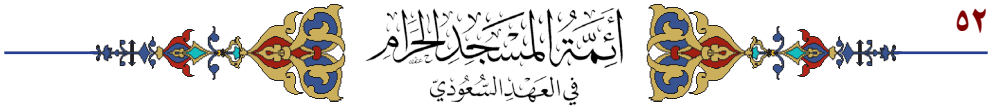 ٥٢
أئمة المسجد الحرام
في العهد السعودي